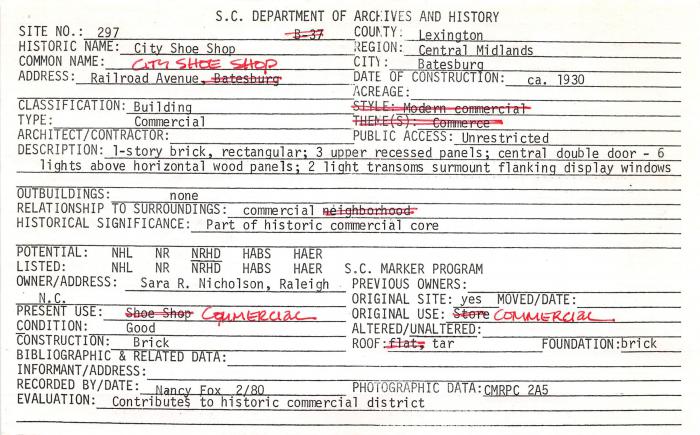 S.C. DEPARTMENT OF ARCHIVES AND HISTORY
SITE NO.: 297 B-37 COUNTY: Lexington
HISTORIC NAME: City Shoe Shop REGION: Central Midlands
COMMON NAME: CITY SHOE SHOP CITY: Batesburg
ADDRESS: Railroad Avenue, Batesburg DATE OF CONSTRUCTION: ca. 1930
ACREAGE:
CLASSIFICATION: Building STYLE: Modern commercial
TYPE: Commercial THEME(S): Commerce
ARCHITECT/CONTRACTOR: PUBLIC ACCESS: Unrestricted
DESCRIPTION: 1-story brick, rectangular; 3 upper recessed panels; central double door - 6
lights above horizontal wood panels; 2 light transoms surmount flanking display windows
OUTBUILDINGS: none
RELATIONSHIP TO SURROUNDINGS: commercial neighborhood
HISTORICAL SIGNIFICANCE: Part of historic commercial core
POTENTIAL: NHL NR NRHD HABS HAER
LISTED: NHL NR NRHD HABS HAER S.C. MARKER PROGRAM
OWNER/ADDRESS: Sara R. Nicholson, Raleigh PREVIOUS OWNERS:
N.C. ORIGINAL SITE: yes MOVED/DATE:
PRESENT USE: Shoe Shop COMMERCIAL ORIGINAL USE: Store COMMERCIAL
CONDITION: Good ALTERED/UNALTERED:
CONSTRUCTION: Brick ROOF: flat, tar FOUNDATION: brick
BIBLIOGRAPHIC & RELATED DATA:
INFORMANT/ADDRESS:
RECORDED BY/DATE: Nancy Fox 2/80 PHOTOGRAPHIC DATA: CMRPC 2A5
EVALUATION: Contributes to historic commercial district